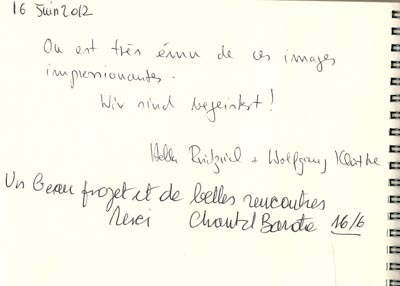 16 Juin 2012
On est très ému de ces images
impressionantes.
Wir sind begeistert!
Wolfgang
Un beau projet et de belles rencontres
Merci Chantal 16/6